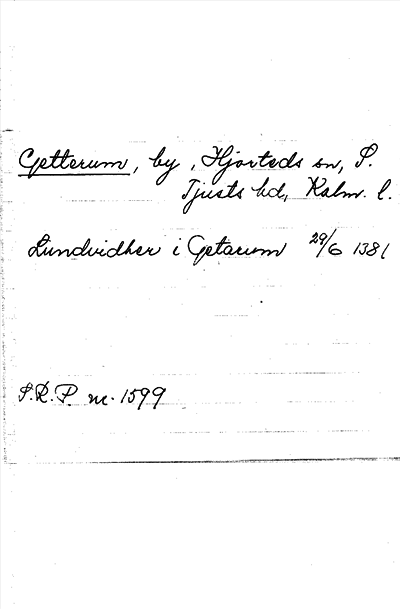 Getterum, by, Hjorteds sn, S.
Tjusts hd, Kalm. l.
Lundvidher i Getarum 29/6 1381
S.R.P. nr. 1599